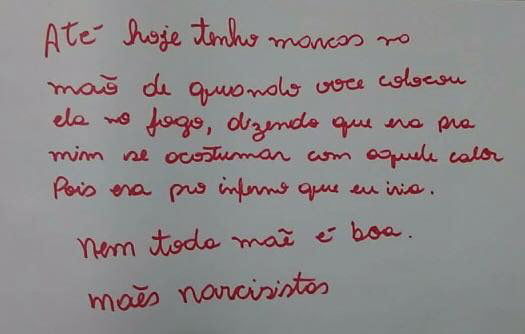 Até hoje tenho marcas na
mão de quando voce colocou
ela no fogo, dizendo que era pra
mim se acostumar com aquele calor
Pois era pro inferno que eu iria.
Nem toda mãe é boa.
mães narcisistas